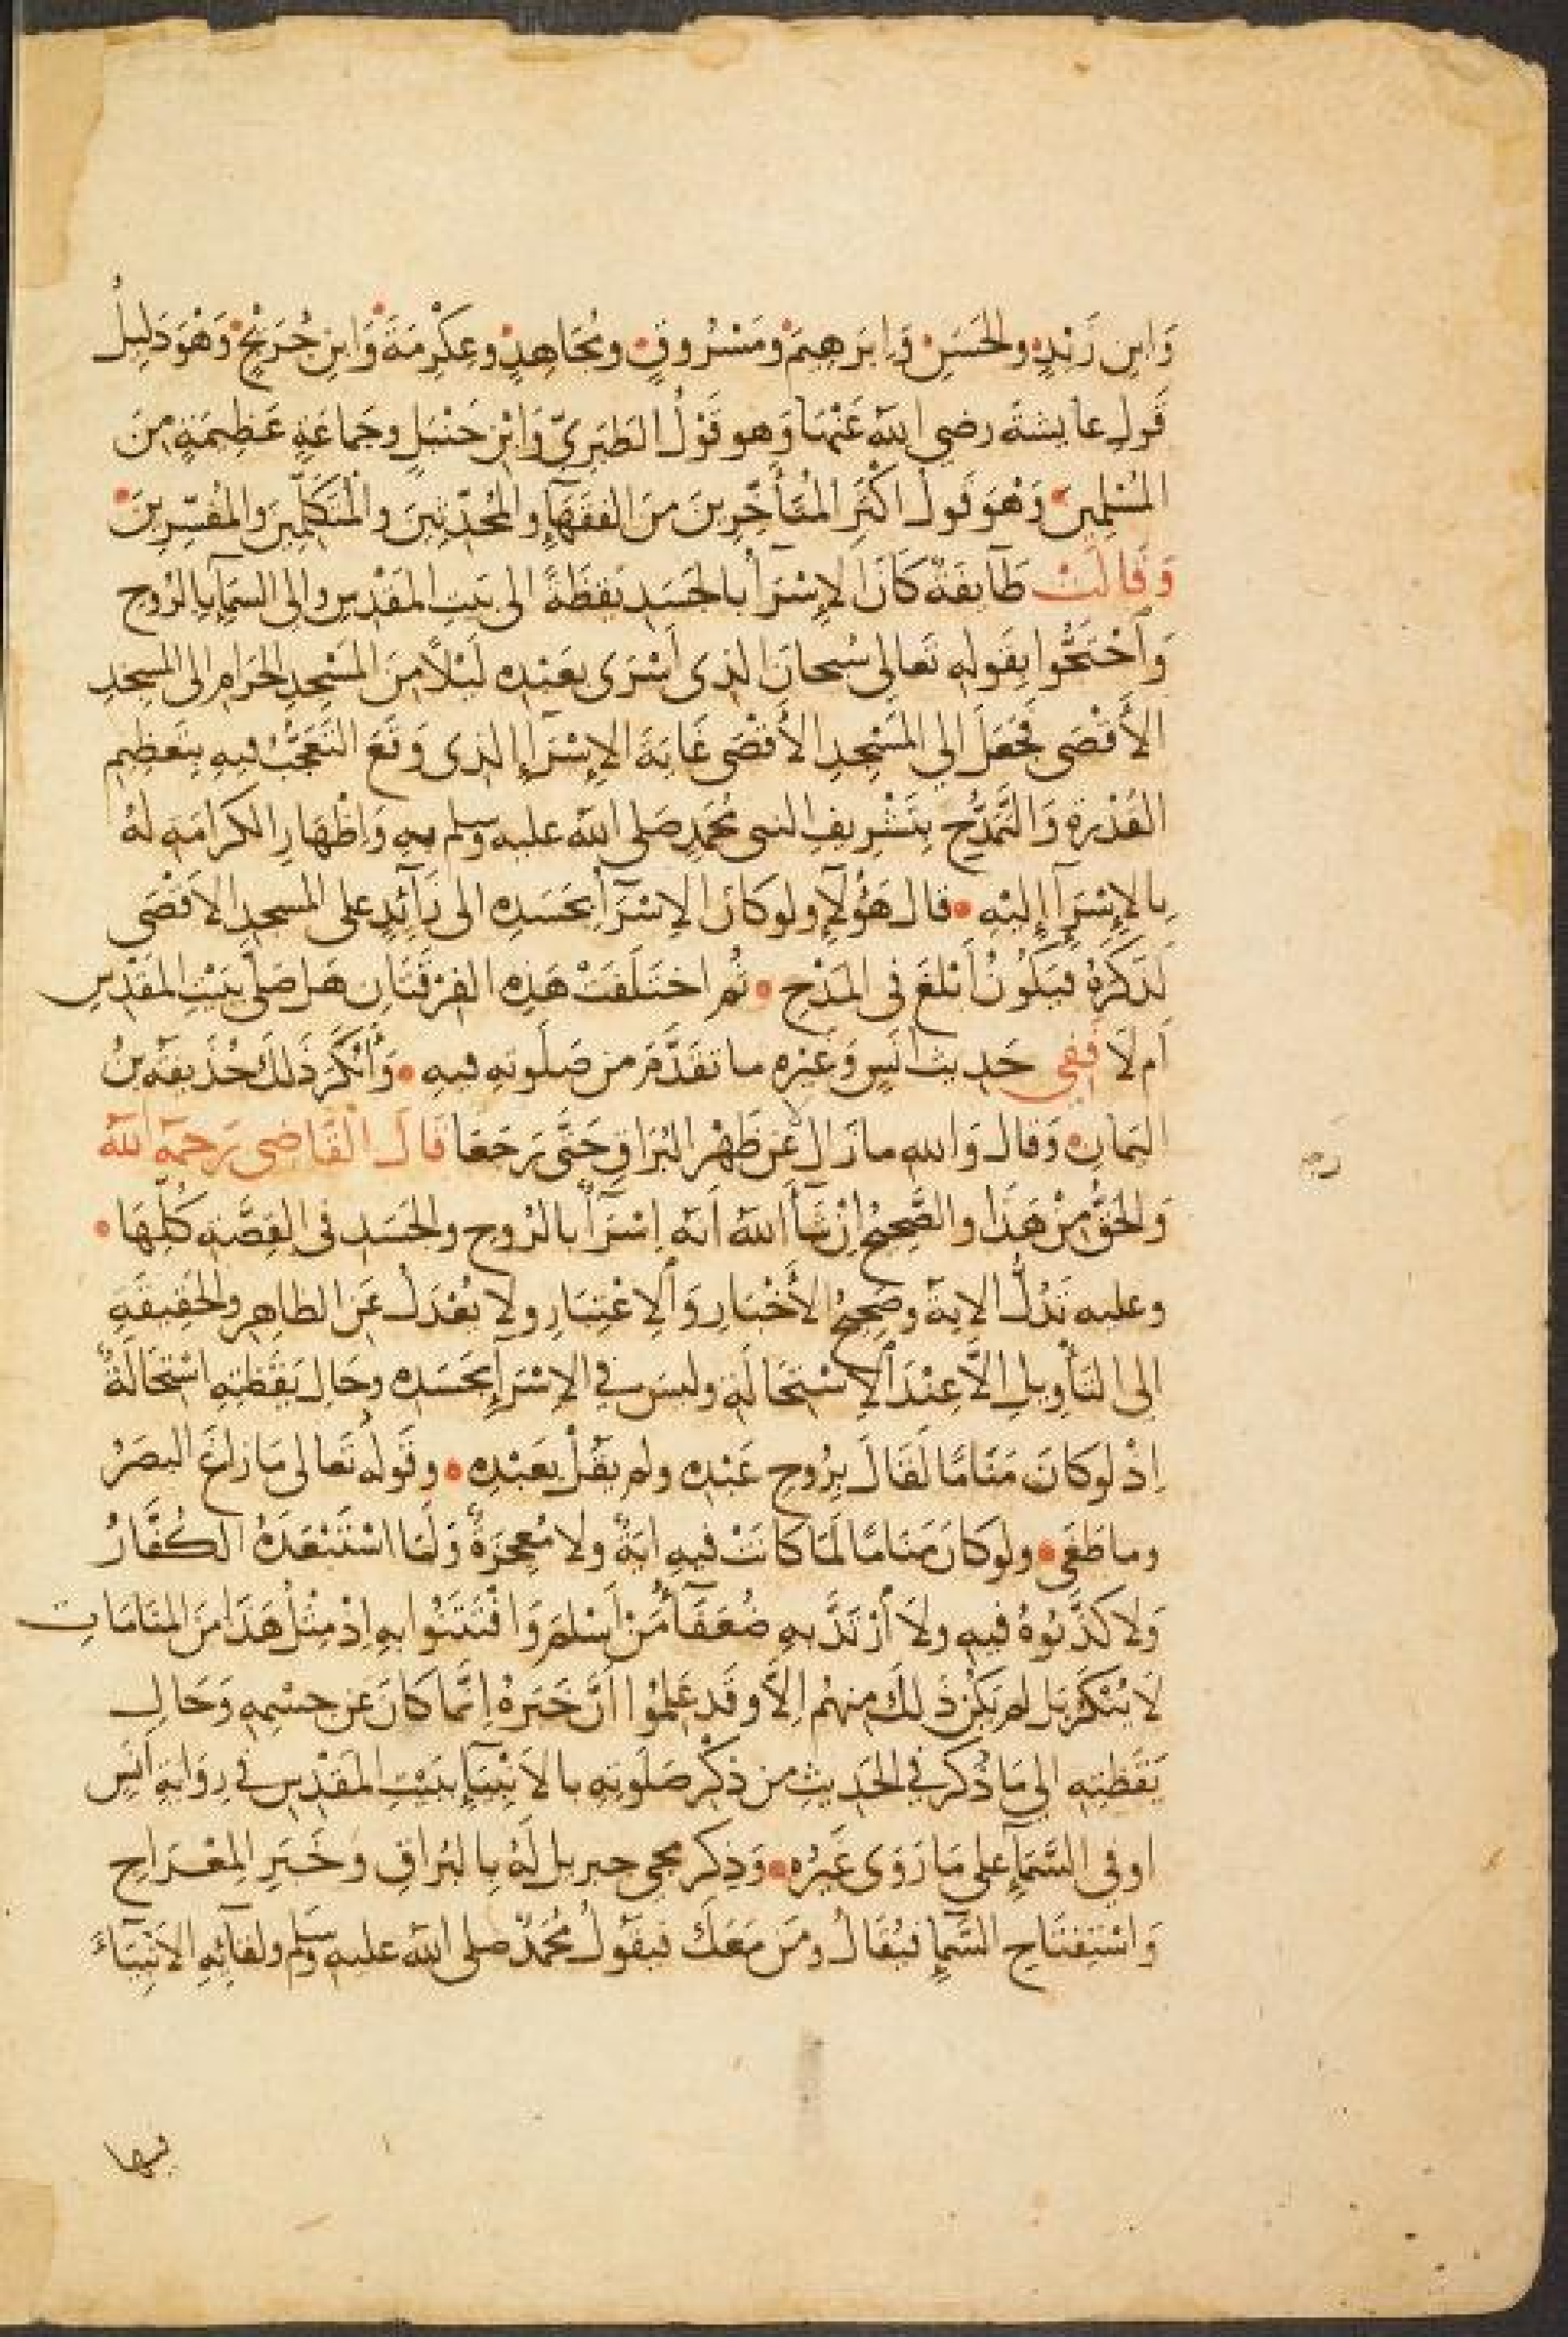 وَابنِ زَيْدٍ والحَسَنِ وَابرَهِيمَ ومَسْرُوقٍ ومُجَاهِدٍ وعِكْرِمَةَ وَابنِ جُرَيْجٍ وَهْوَ دَلِيلُ
قَولِ عايشةَ رضي الله عَنْهَا وَهو قَوْلُ الطَبَرِيِّ وَابْنِ حَنْبَلٍ وجَماعَةٍ عَظِيمَةٍ مِنَ
المُسْلِمِينَ وَهْوَ قَولُ اكْثَرِ المُتَأَخِّرِينَ مِنَ الفقَهَآءِ والمُحَدِّثِينَ والمُتَكَلِّمِينَ والمُفَسِّرِينَ
وَقَالَتْ طَايفَةٌ كَانَ الإِسْرَآءُ بالجَسَدِ يَقظَةً الى بَيتِ المَقْدِسِ والى السَمَآءِ بالرُوحِ
وَاحْتَجُّوا بِقَولِهِ تَعالى سُبحانَ الذى أَسْرَى بِعَبْدِهِ لَيْلاً مِنَ المَسْجِدِ الحَرامِ الى المسجِدِ
الأَقْصَى فجَعَلَ الي المَسْجِدِ الأَقْصَى غَايَةَ الإِسْرَآءِ الذى وَقَعَ التَعَجُّبُ فِيهِ بِتَعظِيمِ
القُدْرَةِ وَالتَّمَدُّحِ بِتَشْرِيفِ النبى مُحَمَدٍ صَلى الله عليه وسلم بِهِ وَاِظْهَارِ الكَرامَةِ لهُ
بِالإِسْرَآءِ إِليْهِ قالَ هَؤُلآءِ ولو كانَ الإسْرَآءُ بجَسَدِهِ الى زَآئِدٍ على المسجدِ الاَقْصَى
لَذَكَرَهُ فيَكُونُ أَبْلغَ فى المَدْحِ ثُم اختَلَفَتْ هَذِهِ الفِرْقَتَانِ هَل صَلَّى بِبَيْتِ المَقْدِسِ
اَم لَا فَفِى حَدِيثِ اَنَسٍ وَغَيْرِهِ ما تقَدَّمَ من صَلَوتِهِ فيهِ وَأَنْكَرَ ذَلكَ حُذَيفَةُ بنُ
اليَمانِ وَقالَ وَاللهِ ما زَالا عَنْ ظَهْرِ البُرَاقِ حَتَّى رَجَعَا قَالَ القَاضِى رَحِمَهُ اللهُ
وَالحَقُّ مِنْ هَذَا والصَّحِيحُ إِنْ شَآءَ اللهُ اَنّهُ اِسْرَآءٌ بالرُوحِ والجَسَدِ فى القِصَّةِ كُلِّهَا
وعليه تَدُلُّ الايةُ وصَحِيحُ الأَخْبَارِ وَالاِعْتِبَارِ ولا يعْدَلُ عَنِ الظاهِرِ والحَقِيقَةِ
الى التَأوِيلِ الاَّ عِنْدَ الاِسْتِحَالَةِ وليسَ في الاِسْرَآءِ بجَسَدِهِ وحَالِ يَقَظتِهِ اسْتِحَالَةٌ
اِذْ لَو كَانَ مَنَامًا لَقَالَ بِرُوحِ عَبْدِهِ ولم يقُلْ بِعَبْدِهِ وقَولُهُ تعالى مَا زاغَ البصَرُ
وما طَغَى ولو كانَ مَنَامًا لَمَا كانَتْ فيهِ ايَةٌ ولا مُعجِزَةٌ وَلَمَا اسْتَبْعَدَهُ الكُفَّارُ
وَلا كَذَّبُوهُ فيهِ ولاَ ارْتَدَّ بهِ ضُعَفَآءُ مَنْ أَسْلمَ وَافْتَتَنُوا بهِ اِذْ مِثْلُ هَذَا مِنَ المَنَامَاتِ
لا يُنْكَرُ بَل لم يَكُنْ ذَلكَ مِنهُم اِلاَّ وقَد عَلِمُوا اَنَّ خَبَرَهُ اِنَّما كانَ عَن جِسْمِهِ وَحَالِ
يَقَظتِهِ الى مَا ذُكِرَ في الحَدِيثِ من ذِكْرِ صَلَوتِهِ بالاَنْبِيَآءِ بِبَيْتِ المَقْدِسِ في رِوَايَةِ اَنَسٍ
او فِى السَّمَآءِ على مَا رَوَى غَيْرُهُ وَذِكرِ مجى جبريل لَهُ بِالبُرَاقِ وَخَبَرِ المِعْرَاجِ
وَاسْتِفتَاحِ السَّمآءِ فيُقَالُ ومَن مَعَكَ فيَقُولُ مُحَمّدٌ صلى الله عليه وسلم ولقآئِهِ الاَنْبِيَآءَ
فيها